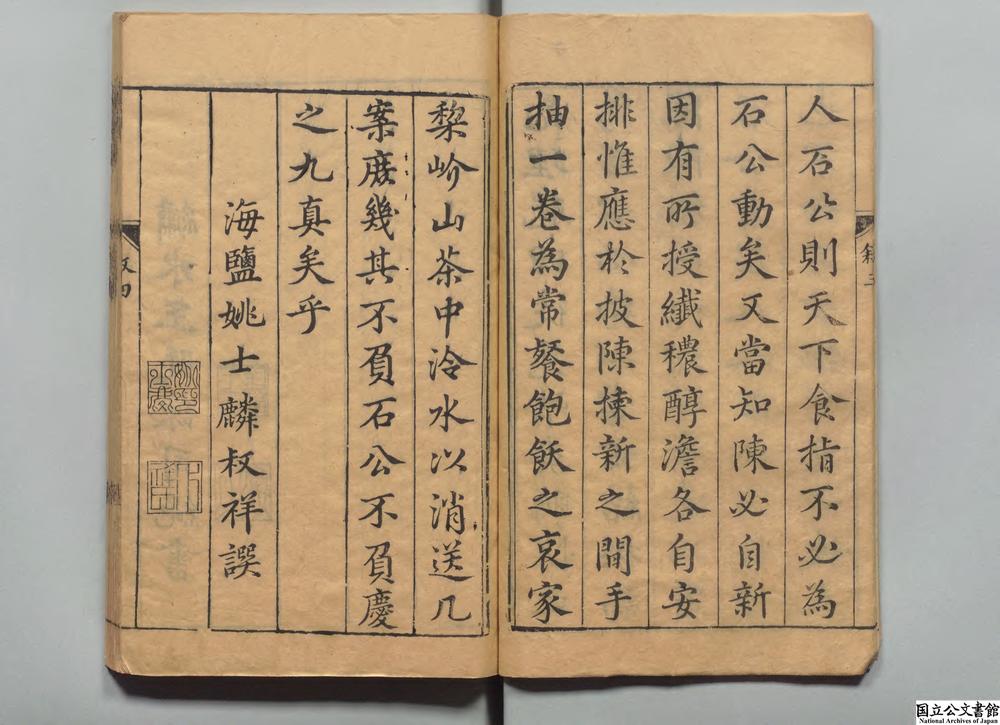 人石公則天下食指不必為
石公動矣又當知陳必自新
因有所授纖穠醇澹各自安
排惟應於披陳揀新之間手
抽一卷為常餐飽飫之哀家
梨岕山茶中泠水以消送几
案庶幾其不負石公不負慶
之九真矣乎
海鹽姚士麟叔祥譔
叙四
国立公文書館
National Archives of Japan